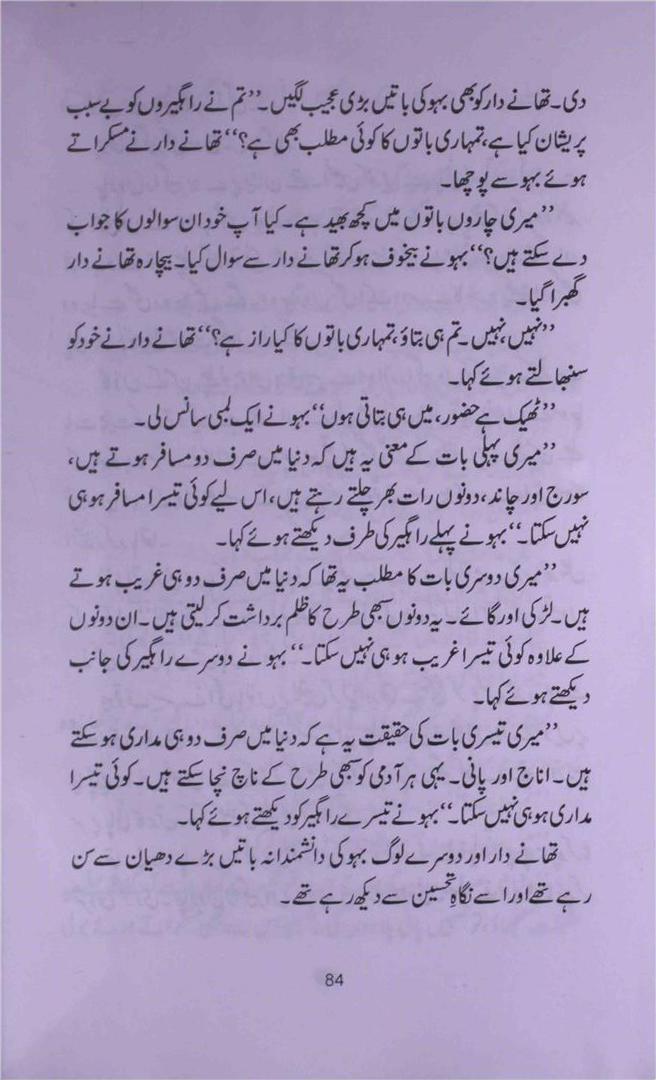 دی۔ تھانے دار کو بھی بہو کی باتیں بڑی عجیب لگیں۔ ’’تم نے راہگیروں کو بے سبب
پریشان کیا ہے، تمہاری باتوں کا کوئی مطلب بھی ہے؟‘‘ تھانے دار نے مسکراتے
ہوئے بہو سے پوچھا۔
’’میری چاروں باتوں میں کچھ بھید ہے۔ کیا آپ خود ان سوالوں کا جواب
دے سکتے ہیں؟‘‘ بہو نے بیخوف ہو کر تھانے دار سے سوال کیا۔ بیچارہ تھانے دار
گھبرا گیا۔
’’نہیں، نہیں۔ تم ہی بتاؤ، تمہاری باتوں کا کیا راز ہے؟‘‘ تھانے دار نے خود کو
سنبھالتے ہوئے کہا۔
’’ٹھیک ہے حضور، میں ہی بتاتی ہوں‘‘ بہو نے ایک لمبی سانس لی۔
’’میری پہلی بات کے معنی یہ ہیں کہ دنیا میں صرف دو مسافر ہوتے ہیں،
سورج اور چاند، دونوں رات بھر چلتے رہتے ہیں، اس لیے کوئی تیسرا مسافر ہو ہی
نہیں سکتا۔‘‘ بہو نے پہلے راہگیر کی طرف دیکھتے ہوئے کہا۔
’’میری دوسری بات کا مطلب یہ تھا کہ دنیا میں صرف دو ہی غریب ہوتے
ہیں۔ لڑکی اور گائے۔ یہ دونوں سبھی طرح کا ظلم برداشت کر لیتی ہیں۔ ان دونوں
کے علاوہ کوئی تیسرا غریب ہو ہی نہیں سکتا۔‘‘ بہو نے دوسرے راہگیر کی جانب
دیکھتے ہوئے کہا۔
’’میری تیسری بات کی حقیقت یہ ہے کہ دنیا میں صرف دو ہی مداری ہو سکتے
ہیں۔ اناج اور پانی۔ یہی ہر آدمی کو سبھی طرح کے ناچ نچا سکتے ہیں۔ کوئی تیسرا
مداری ہو ہی نہیں سکتا۔‘‘ بہو نے تیسرے راہگیر کو دیکھتے ہوئے کہا۔
تھانے دار اور دوسرے لوگ بہو کی دانشمندانہ باتیں بڑے دھیان سے سن
رہے تھے اور اسے نگاہِ تحسین سے دیکھ رہے تھے۔
84